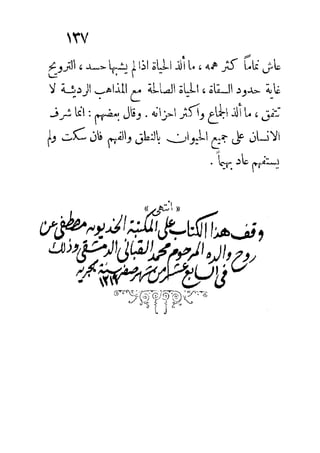 ١٣٧
عاش نماماً كثر همه ، ما ألذ الحياة اذا لم يشبها حسد ، الترويح
غاية حدود السقاة ، الحياة الصالحة مع المذاهب الرديئة لا
تتفق ، ما ألذ الجماع واكثر احزانه . وقال بعضهم : انما شرف
الانسان على جميع الحيوان بالنطق والفهم فان سكت ولم
يستفهم عاد بهيماً .
« انتهى »
وقف هذا الكتاب على المكتبة الخديوية مصطفى عن
روح والده المرحوم محمد القباني الدمشقي وذلك
في السابع عشر من شهر صفر سنة هجرية